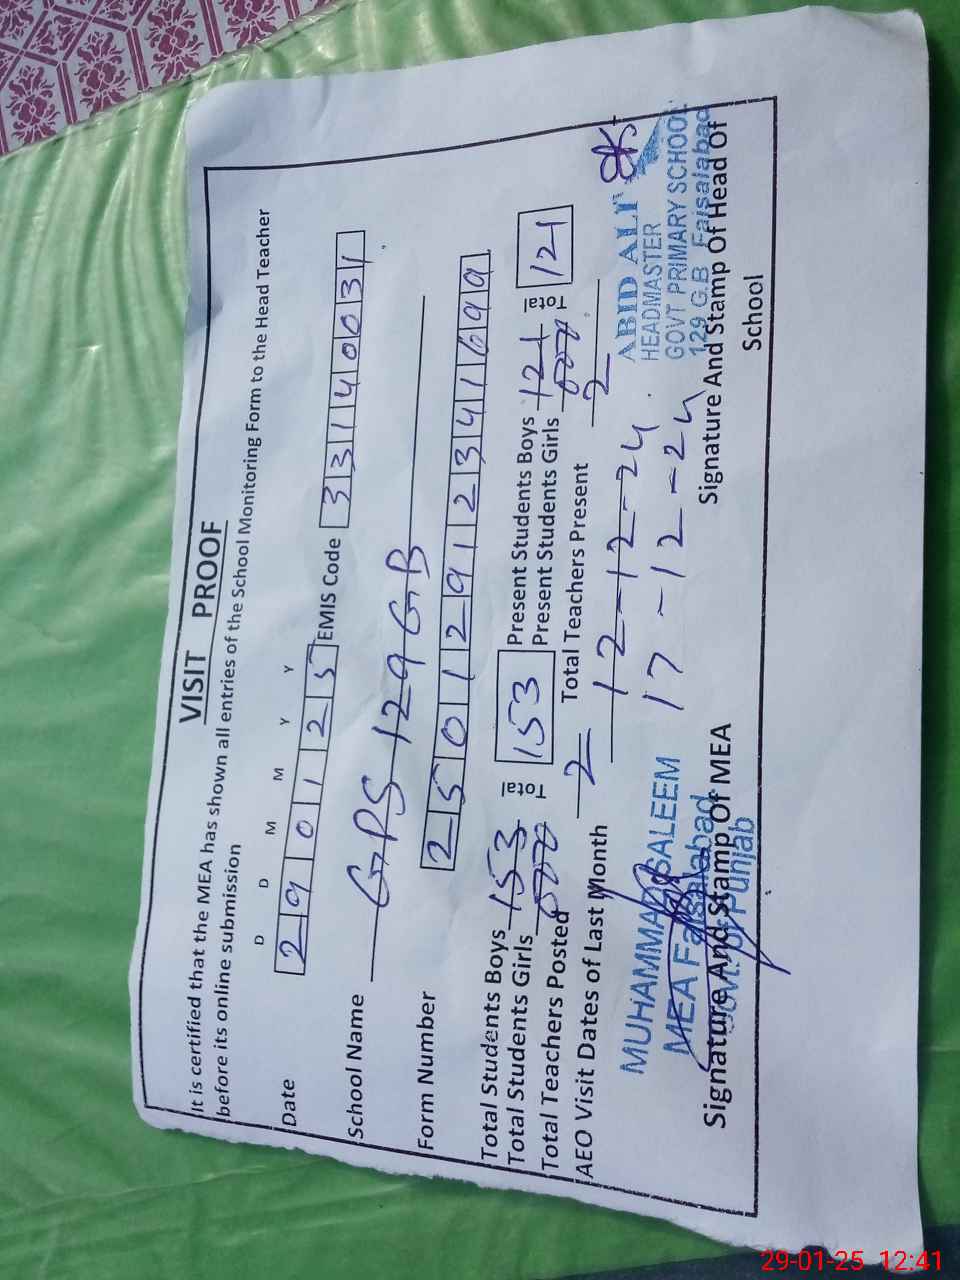 VISIT PROOF
It is certified that the MEA has shown all entries of the School Monitoring Form to the Head Teacher
before its online submission
D D M M Y Y
Date 290125 EMIS Code 33140031
School Name GPS 129 GB
Form Number 25012912341699
Total Students Boys 153 Total 153 Present Students Boys 121 Total 121
Total Students Girls 000 Present Students Girls 000
Total Teachers Posted 2 Total Teachers Present 2
AEO Visit Dates of Last Month 12-12-24
17-12-24
MUHAMMAD SALEEM
MEA Faisalabad
Govt. of Punjab
Signature And Stamp Of MEA
ABID ALI
HEADMASTER
GOVT PRIMARY SCHOOL
129 G.B Faisalabad
Signature And Stamp Of Head Of
School
29-01-25 12:41